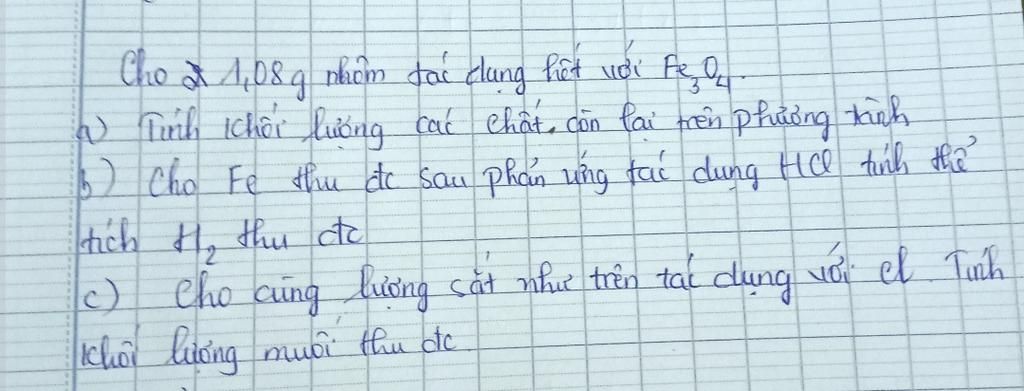 Cho 1,08g nhôm tác dụng hết với Fe3O4.
a) Tính khối lượng các chất còn lại trên phương trình
b) Cho Fe thu đc sau phản ứng tác dụng HCl tính thể
tích H2 thu đc
c) Cho cùng lượng sắt như trên tác dụng với cl Tính
khối lượng muối thu đc